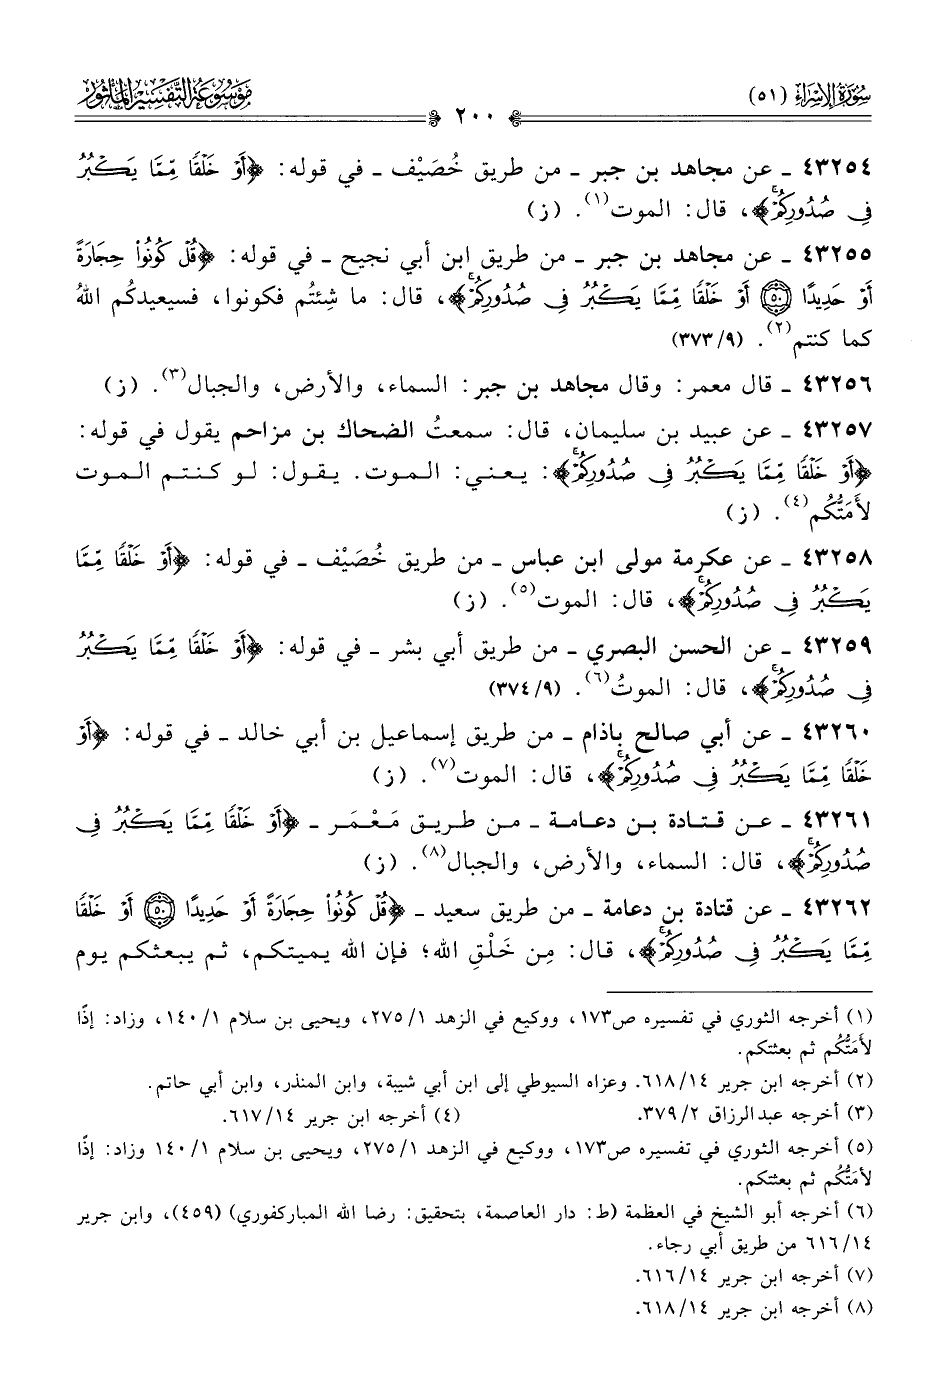 سُورَةُ الإِسْرَاءِ (٥١)
٢٠٠
مَوْسُوعَةُ التَّفْسِيرِ المَأْثُورِ
٤٣٢٥٤ ـ عن مجاهد بن جبر ـ من طريق خُصَيْف ـ في قوله: ﴿أَوْ خَلْقًا مِّمَّا يَكْبُرُ
فِى صُدُورِكُمْۚ﴾، قال: الموت(١). (ز)
٤٣٢٥٥ ـ عن مجاهد بن جبر ـ من طريق ابن أبي نجيح ـ في قوله: ﴿قُلْ كُونُوا۟ حِجَارَةً
أَوْ حَدِيدًا ۝٥٠ أَوْ خَلْقًا مِّمَّا يَكْبُرُ فِى صُدُورِكُمْۚ﴾، قال: ما شِئتُم فكونوا، فسيعيدكُم اللهُ
كما كنتم(٢). (٣٧٣/٩)
٤٣٢٥٦ ـ قال معمر: وقال مجاهد بن جبر: السماء، والأرض، والجبال(٣). (ز)
٤٣٢٥٧ ـ عن عبيد بن سليمان، قال: سمعتُ الضحاك بن مزاحم يقول في قوله:
﴿أَوْ خَلْقًا مِّمَّا يَكْبُرُ فِى صُدُورِكُمْۚ﴾: يعني: الموت. يقول: لو كنتم الموت
لأمَتُّكُم(٤). (ز)
٤٣٢٥٨ ـ عن عكرمة مولى ابن عباس ـ من طريق خُصَيْف ـ في قوله: ﴿أَوْ خَلْقًا مِّمَّا
يَكْبُرُ فِى صُدُورِكُمْۚ﴾، قال: الموت(٥). (ز)
٤٣٢٥٩ ـ عن الحسن البصري ـ من طريق أبي بشر ـ في قوله: ﴿أَوْ خَلْقًا مِّمَّا يَكْبُرُ
فِى صُدُورِكُمْۚ﴾، قال: الموتُ(٦). (٣٧٤/٩)
٤٣٢٦٠ ـ عن أبي صالح باذام ـ من طريق إسماعيل بن أبي خالد ـ في قوله: ﴿أَوْ
خَلْقًا مِّمَّا يَكْبُرُ فِى صُدُورِكُمْۚ﴾، قال: الموت(٧). (ز)
٤٣٢٦١ ـ عن قتادة بن دعامة ـ من طريق مَعْمَر ـ ﴿أَوْ خَلْقًا مِّمَّا يَكْبُرُ فِى
صُدُورِكُمْۚ﴾، قال: السماء، والأرض، والجبال(٨). (ز)
٤٣٢٦٢ ـ عن قتادة بن دعامة ـ من طريق سعيد ـ ﴿قُلْ كُونُوا۟ حِجَارَةً أَوْ حَدِيدًا ۝٥٠ أَوْ خَلْقًا
مِّمَّا يَكْبُرُ فِى صُدُورِكُمْۚ﴾، قال: مِن خَلْقِ الله؛ فإن الله يميتكم، ثم يبعثكم يوم
(١) أخرجه الثوري في تفسيره ص١٧٣، ووكيع في الزهد ٢٧٥/١، ويحيى بن سلام ١٤٠/١، وزاد: إذًا
لأمَتُّكُم ثم بعثتكم.
(٢) أخرجه ابن جرير ٦١٨/١٤. وعزاه السيوطي إلى ابن أبي شيبة، وابن المنذر، وابن أبي حاتم.
(٣) أخرجه عبدالرزاق ٣٧٩/٢. (٤) أخرجه ابن جرير ٦١٧/١٤.
(٥) أخرجه الثوري في تفسيره ص١٧٣، ووكيع في الزهد ٢٧٥/١، ويحيى بن سلام ١٤٠/١ وزاد: إذًا
لأمَتُّكُم ثم بعثتكم.
(٦) أخرجه أبو الشيخ في العظمة (ط: دار العاصمة، بتحقيق: رضا الله المباركفوري) (٤٥٩)، وابن جرير
٦١٦/١٤ من طريق أبي رجاء.
(٧) أخرجه ابن جرير ٦١٦/١٤.
(٨) أخرجه ابن جرير ٦١٨/١٤.